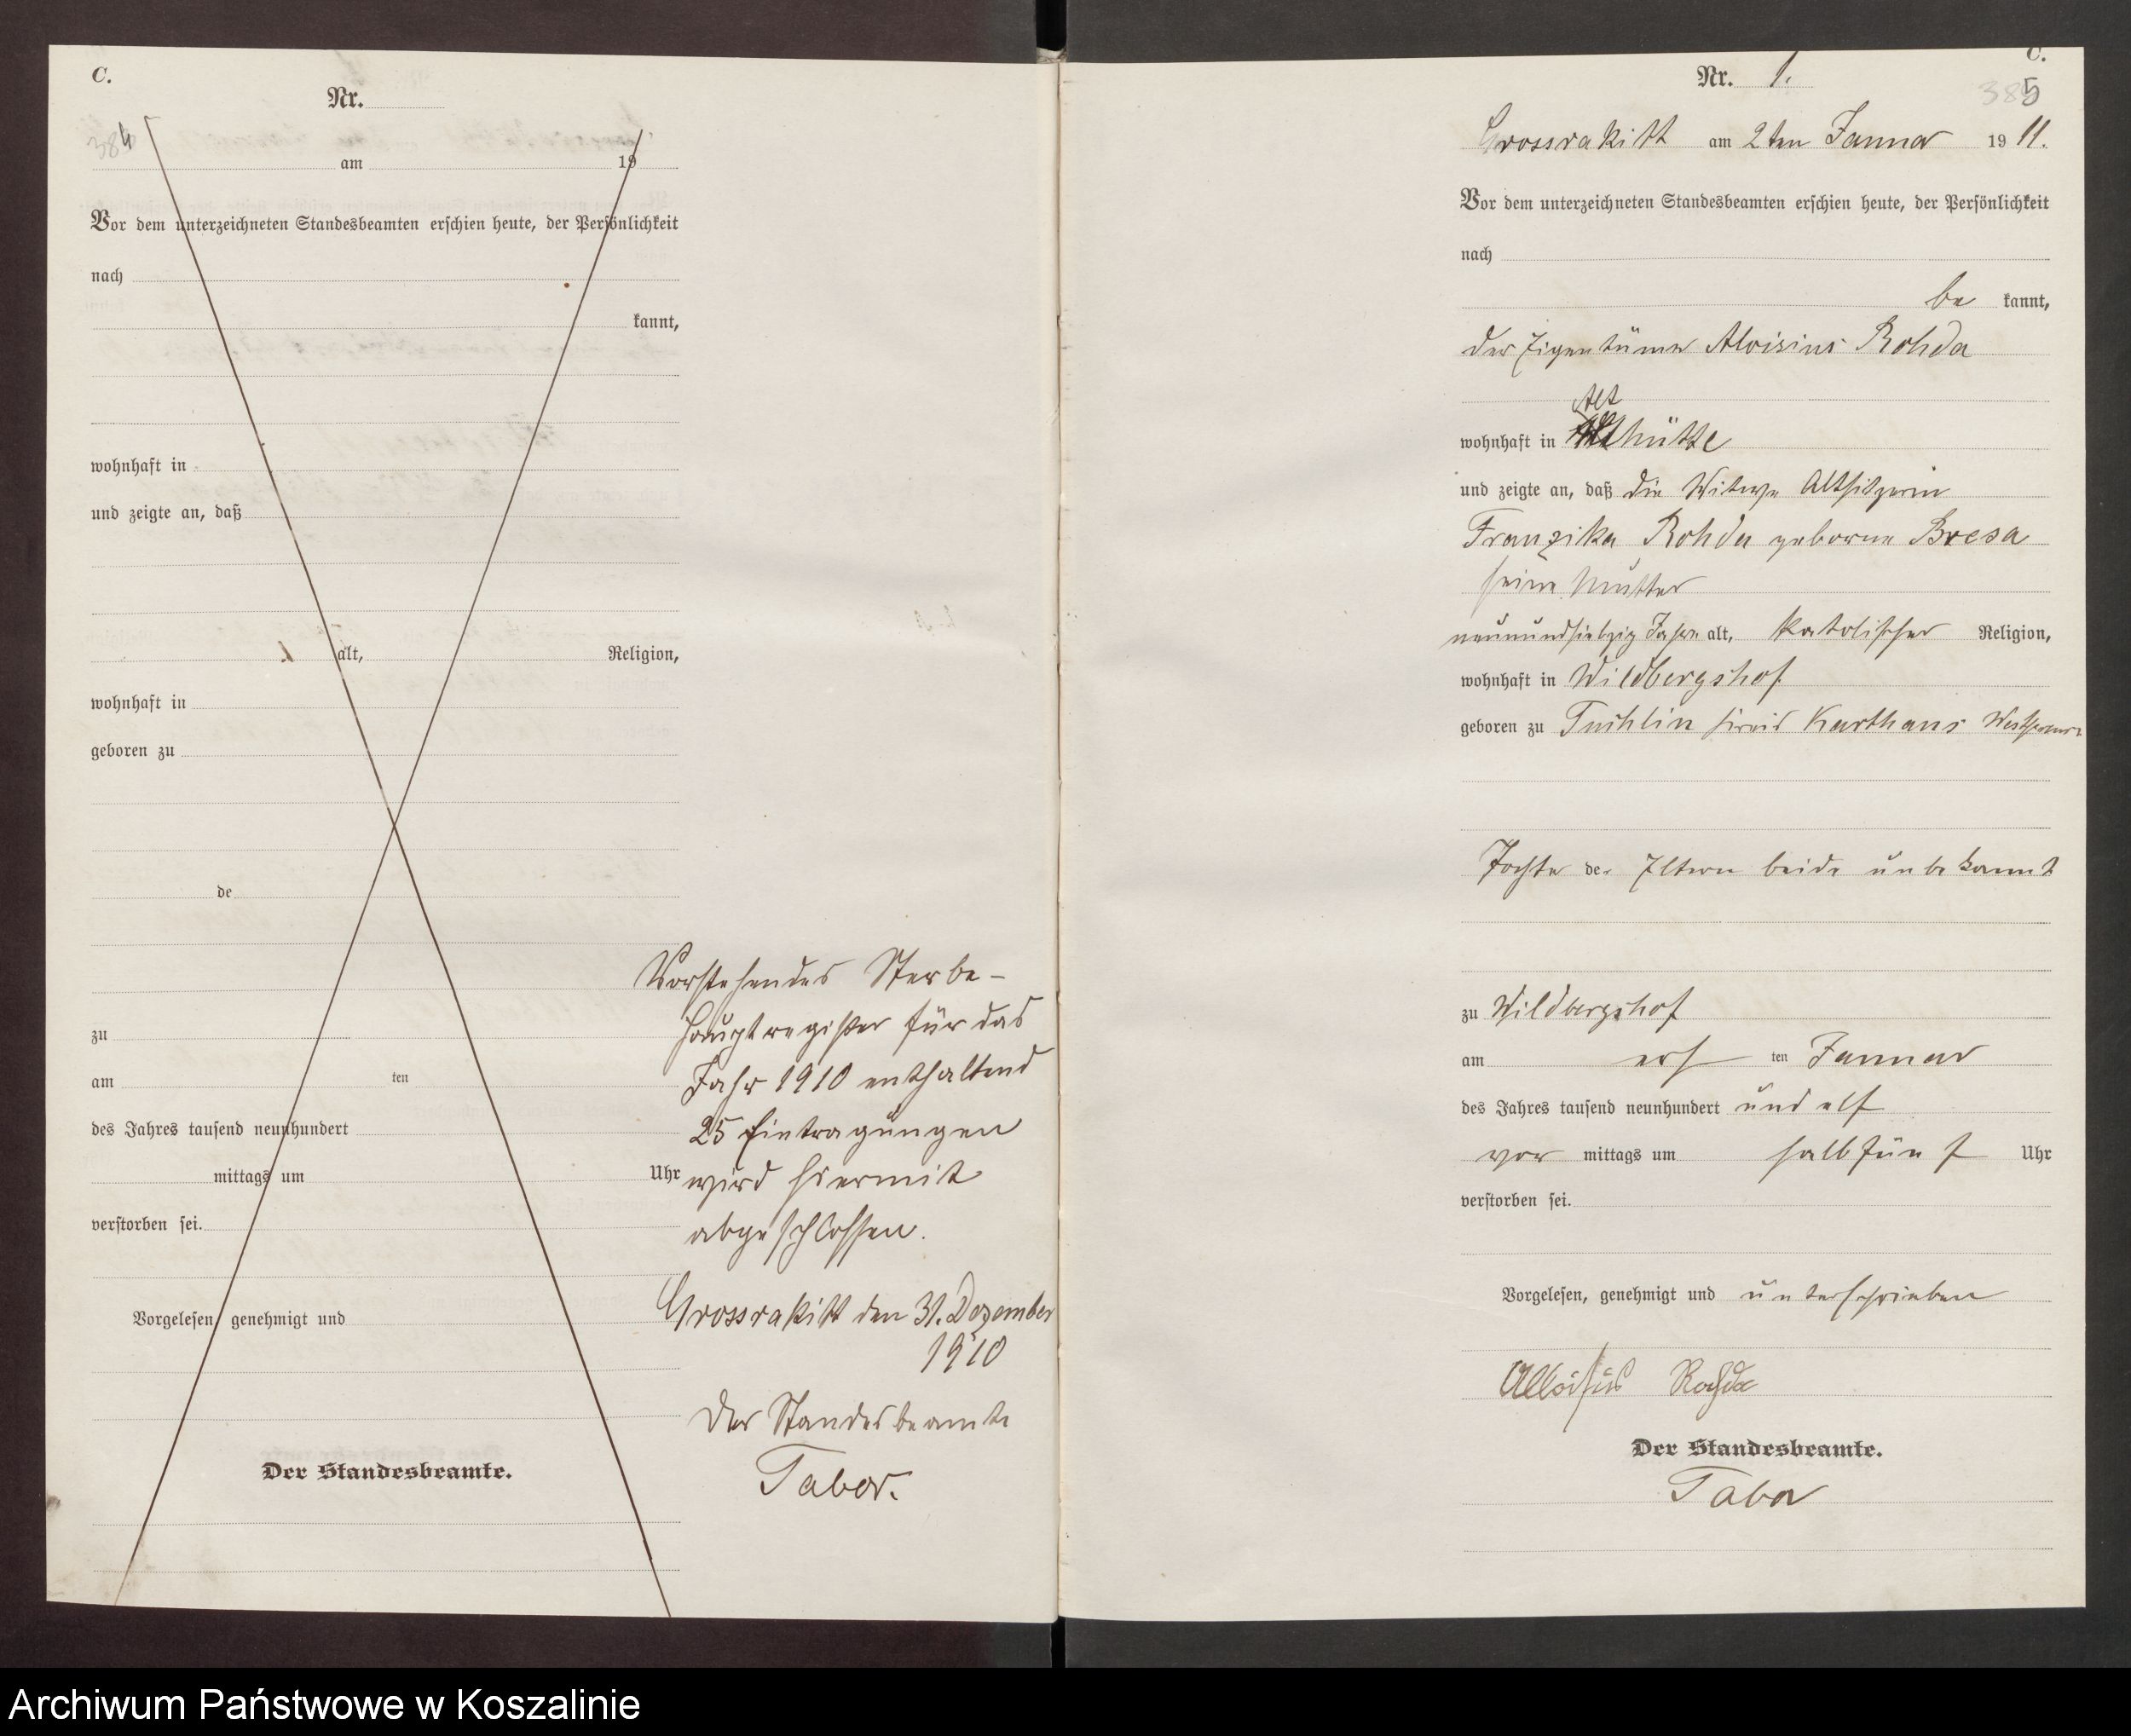 C.
Nr.
384
am 19
Vor dem unterzeichneten Standesbeamten erschien heute, der Persönlichkeit
nach
kannt,
wohnhaft in
und zeigte an, daß
alt, Religion,
wohnhaft in
geboren zu
de
zu
am ten
des Jahres tausend neunhundert
mittags um Uhr
verstorben sei.
Vorgelesen, genehmigt und
Der Standesbeamte.
Vorstehendes Sterbe-
hauptregister für das
Jahr 1910 enthaltend
25 Eintragungen
wird hiermit
abgeschlossen.
Grossrakitt den 31. Dezember
1910
Der Standesbeamte
Tabor.
C.
Nr. 1.
385
Grossrakitt am 2ten Januar 1911.
Vor dem unterzeichneten Standesbeamten erschien heute, der Persönlichkeit
nach
be kannt,
der Eigentümer Aloisius Rohda
Alt
wohnhaft in hütte
und zeigte an, daß die Witwe Altsitzerin
Franzika Rohda geborne Bresa
seine Mutter
neunundsiebzig Jahre alt, katolischer Religion,
wohnhaft in Wildbergshof
geboren zu Karthaus
Tochter der Eltern beide unbekannt
zu Wildbergshof
am ersten Januar
des Jahres tausend neunhundert und elf
vor mittags um halb fünf Uhr
verstorben sei.
Vorgelesen, genehmigt und unterschrieben
Alloisius Rohda
Der Standesbeamte.
Tabor
Archiwum Państwowe w Koszalinie